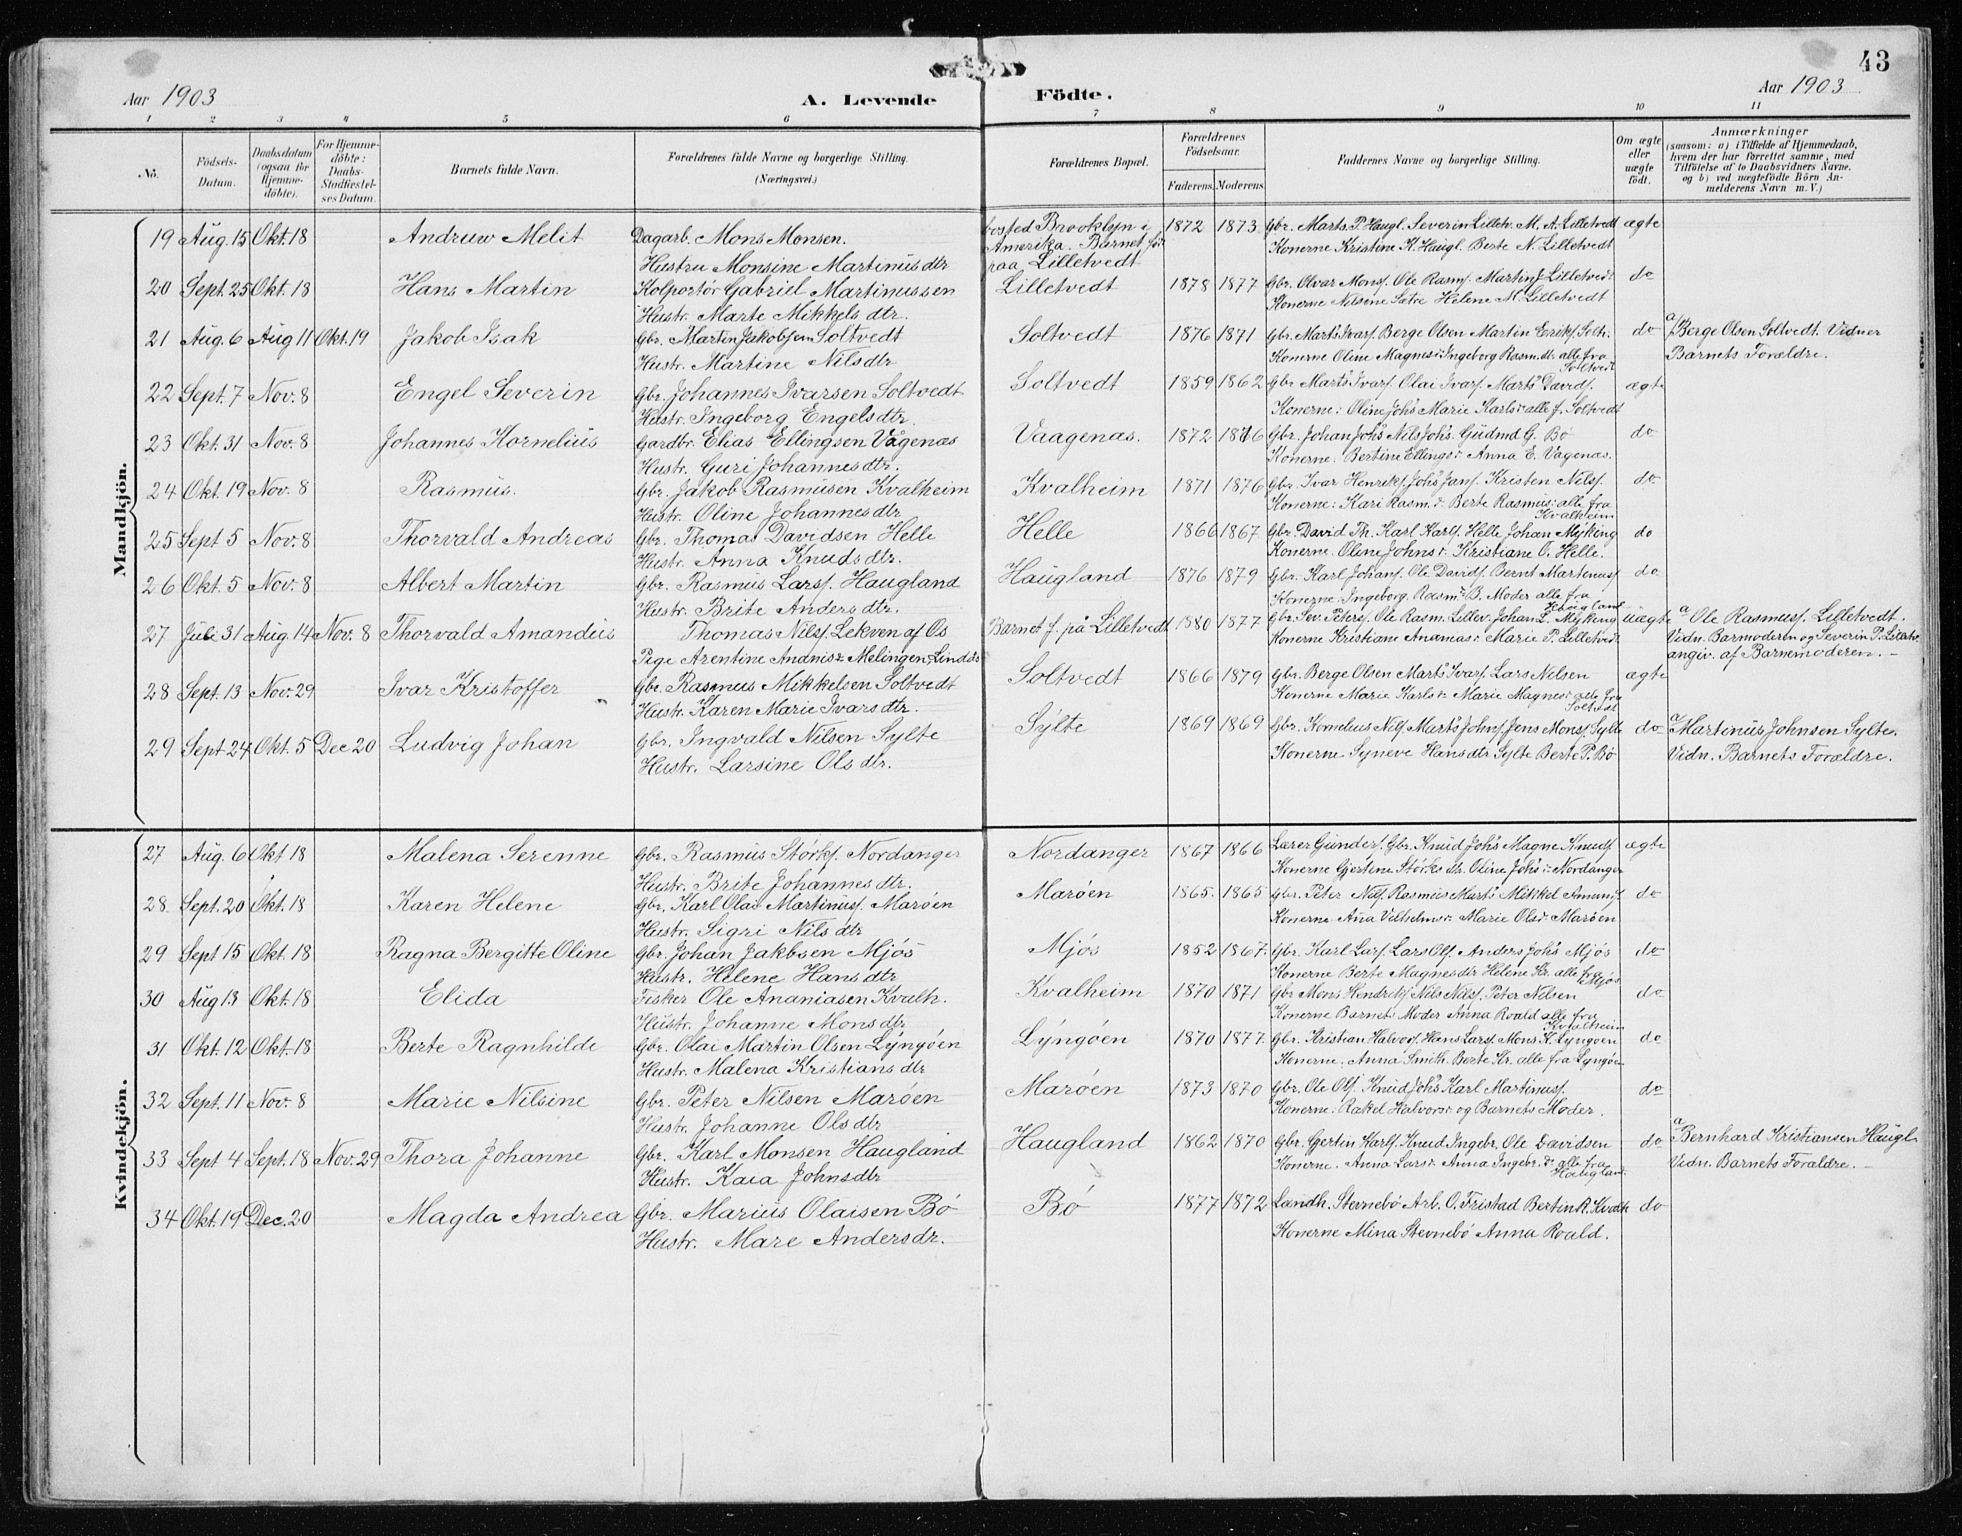 43
Aar 1903 A. Levende Födte. Aar 1903
1 2 3 4 5 6 7 8 9 10 11
No. Födsels-Datum. Daabsdatum (ogsaa for Hjemmedöbte). For Hjemmedöbte: Daabs-Stadfæstelses Datum. Barnets fulde Navn. Forældrenes fulde Navne og borgerlige Stilling. (Næringsvei.) Forældrenes Bopæl. Forældrenes Födselsaar. Faderens. Moderens. Faddernes Navne og borgerlige Stilling. Om ægte eller uægte födt. Anmærkninger (saasom: a) i Tilfælde af Hjemmedaab, hvem der har forrettet samme, med Tilföielse af to Daabsvidners Navne, og b) ved uægtefödte Börn Anmelderens Navn m. V.)
Mandkjön.
19 Aug. 15 Okt. 18 Andruw Melit Dagarb. Mons Monsen. bosted Brooklyn i 1872 1873 Gbr. Marts P. Haugl. Severin Lilletv. M. A. Lilletvedt ægte
Hustru Monsine Martinus dtr Amerika. Barnet født paa Lilletvedt Konerne Kristine K. Haugl. Berte N. Lilletvedt
20 Sept. 25 Okt. 18 Hans Martin Kolportör Gabriel Martinussen Lilletvedt 1878 1877 Gbr. Olvar Mons. Ole Rasm. Martin J. Lilletvedt do
Hustr. Marte Mikkels dtr. Konerne Nilsine Satre Helene M. Lilletvedt
21 Aug. 6 Aug 11 Okt. 19 Jakob Isak Gbr. Martin Jakobsen Soltvedt Soltvedt 1876 1871 Gbr. Marts Ivars. Berge Olsen Martin Eriks. Solt. do a) Berge Olsen Soltvedt. Vidner
Hustr. Martine Nils dtr Konerne Oline Magnes: Ingeborg Rasm. dr. alle fra Soltvedt Barnets Forældre.
22 Sept. 7 Nov. 8 Engel Severin Gbr. Johannes Ivarsen Soltvedt Soltvedt 1859 1862 Gbr Marts Ivars. Olai Ivars. Marts Davids. ægte
Hustr. Ingeborg Engels dtr. Konerne: Oline Johs Marie Karls: alle f. Soltvedt
23 Okt. 31 Nov. 8 Johannes Kornelius Gardbr. Elias Ellingsen Vågenæs Vaagenæs. 1872 1876 Gbr. Johan Johs Nils Johs. Gudmd G. Bø do
Hustr. Guri Johannes dtr. Konerne. Bertine Ellings: Anna E. Vagenæs.
24 Okt. 19 Nov. 8 Rasmus. Gbr. Jakob Rasmusen Kvalheim Kvalheim 1871 1876 Gbr. Ivar Henriks. Johs Jans. Kristen Nils. do
Hustr. Oline Johannes dtr Konerne: Kari Rasm. dr. Berte Rasmus: alle fra Kvalheim
25 Sept 5 Nov. 8 Thorvald Andreas Gbr. Thomas Davidsen Helle Helle 1866 1867 Gbr. David Th. Karl Karls. Helle Johan Myking do
Hustr. Anna Knuds dtr. Konerne. Oline Johns: Kristiane O. Helle.
26 Okt. 5 Nov. 8 Albert Martin Gbr. Rasmus Lars. Haugland Haugland 1876 1879 Gbr. Karl Johans. Ole Davids. Bernt Martinus. do
Hustr. Brite Anders dtr. Konerne: Ingeborg. Rasm: B. Moder alle fra Haugland
27 Juli 31 Aug. 14 Nov. 8 Thorvald Amandus Thomas Nils. Lekven af Os Barnet f. på Lilletvedt 1880 1877 Gbr. Sev. Peters. Ole Rasm. Lilletv. Johan L. Myking uægte a Ole Rasmus. Lilletvedt.
Pige Arentine Andnis: Melingen, Lindås Konerne Kristiane Ananias: Marie P. Lilletvedt Vidn. Barmoderen og Severin P. Lilletv.
angiv. af Barnemoderen.
28 Sept. 13 Nov. 29 Ivar Kristoffer Gbr. Rasmus Mikkelsen Soltvedt Soltvedt 1866 1879 Gbr. Berge Olsen Marts Ivars. Lars Nilsen ægte
Hustr. Karen Marie Ivars dtr. Konerne Marie Karls: Marie Magnes: alle fra Soltvedt
29 Sept. 24 Okt. 5 Dec 20 Ludvig Johan Gbr. Ingvald Nilsen Sylte Sylte 1869 1869 Gbr. Kornelius Nils. Marts Johns. Jens Mons. Sylte do a) Martinus Johnsen Sylte.
Hustr. Larsine Ols dtr. Konerne Syneve Hans dtr Sylte Berte P. Bø Vidn. Barnets Forældre.
Kvindekjön.
27 Aug. 6 Okt 18 Malena Serenne Gbr. Rasmus Størks. Nordanger Nordanger 1867 1866 Lærer Gunders. Gbr. Knud Johs Magne Knuds. ægte
Hustr. Brite Johannes dtr. Konerne Gjertine Størks dr. Oline Johs: Nordanger
28 Sept. 20 Okt. 18 Karen Helene Gbr. Karl Olai Martinus. Marøen Marøen 1865. 1865 Gbr. Peter Nils. Rasmus Marts Mikkel Amunds. do
Hustr. Sigri Nils dtr Konerne Ana Vilhelms: Marie Ols: Marøen
29 Sept 15 Okt. 18 Ragna Bergitte Oline Gbr. Johan Jakbsen Mjøs Mjøs 1852 1867. Gbr. Karl Lars. Lars Ols. Anders Johs Mjøs do
Hustr. Helene Hans dtr Konerne Berte Magnes dtr Helene Kr. alle fra Mjøs
30 Aug 13 Okt. 18 Elida Fisker Ole Ananiasen Kvalh. Kvalheim 1870 1871 Gbr Mons Hendriks. Nils Nils. Peter Nilsen do
Hustr. Johanne Mons dtr Konerne Barnets Moder Anna Roald alle fra Kvalheim
31 Okt. 12 Okt. 18 Berte Ragnhilde Gbr. Olai Martin Olsen Lyngøen Lyngøen 1870 1877. Gbr. Kristian Halvors. Hans Lars. Mons K. Lyngøen do
Hustr. Malena Kristians dtr Konerne. Anna Smith. Berte Kr. alle fra Lyngøen
32 Sept. 11 Nov. 8 Marie Nilsine Gbr. Peter Nilsen Marøen Marøen 1873 1870 Gbr. Ole Ols. Knud Johs Karl Martinus. do
Hustr. Johanne Ols dtr Konerne: Rakel Halvors: og Barnets Moder.
33 Sept 4 Sept. 18 Nov. 29 Thora Johanne Gbr. Karl Monsen Haugland Haugland 1862 1870 Gbr. Gjertin Karls. Knud Ingebr. Ole Davidsen do a) Bernhard Kristiansen Haugl.
Hustr. Kaia Johnsdtr Konerne. Anna Lars: Anna Ingebr. dr alle fra Haugland. Vidn. Barnets Forældre.
34 Okt. 19 Dec. 20 Magda Andrea Gbr. Marius Olaisen Bø Bø 1877 1872 Landh. Sternebø Arb. O. Fristad Bertin R. Kvalh do
Hustr. Mare Anders dr. Konerne Mina Sternebø Anna Roald.